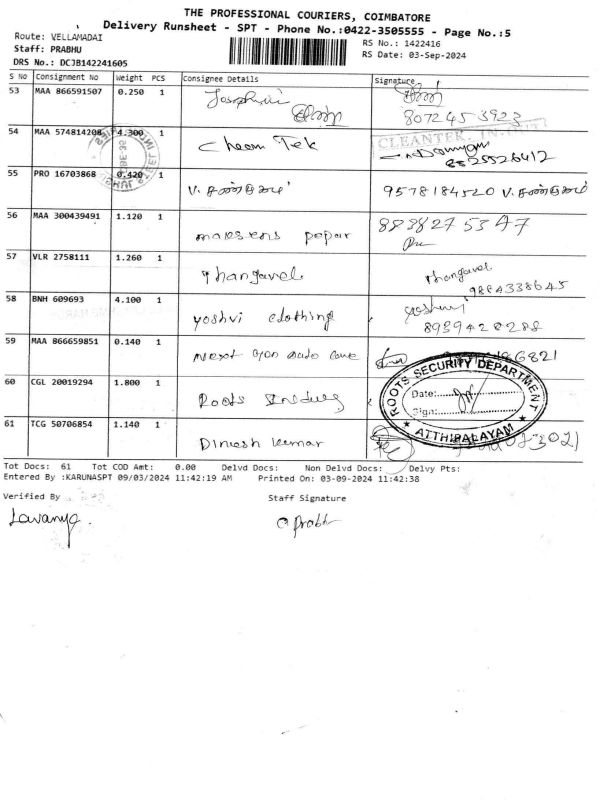 THE PROFESSIONAL COURIERS, COIMBATORE
Delivery Runsheet - SPT - Phone No.:0422-3505555 - Page No.:5
Route: VELLAMADAI
RS No.: 1422416
Staff: PRABHU
RS Date: 03-Sep-2024
DRS No.: DCJB142241605
S No Consignment No Weight PCS Consignee Details Signature
53 MAA 866591507 0.250 1
8072453923
54 MAA 574814208 4.300 1 Cheam Tek CLEANTEK
8825526412
55 PRO 16703868 0.420 1 V. சண்முகம் 9578184520 V. சண்முகம்
56 MAA 300439491 1.120 1 papar 8838275347
57 VLR 2758111 1.260 1 Thangavel Thangavel
9884338645
58 BNH 609693 4.100 1 yoshvi clothing yoshvi
8939420288
59 MAA 866659851 0.140 1 Next gen auto care
60 CGL 20019294 1.800 1 Roots
ROOTS SECURITY DEPARTMENT
Date:
Sign:
ATTHIPALAYAM
61 TCG 50706854 1.140 1 Dinesh kumar
Tot Docs: 61 Tot COD Amt: 0.00 Delvd Docs: Non Delvd Docs: Delvy Pts:
Entered By :KARUNASPT 09/03/2024 11:42:19 AM Printed On: 03-09-2024 11:42:38
Verified By Staff Signature
Lavanya. Prabh